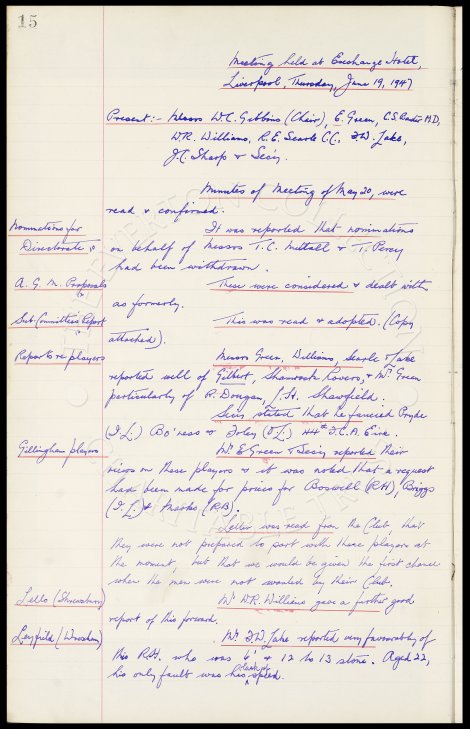 15
Meeting held at Exchange Hotel,
Liverpool, Thursday, June 19, 1947
Present:- Messrs W.C. Gibbins (Chair), E. Green, C.S. Baxter M.D,
W.R. Williams, R.E. Searle C.C., F.W. Jake,
J.C. Sharp & Sec'y.
Minutes of Meeting of May 20, were
read & confirmed.
Nominations for
Directorate
It was reported that nominations
on behalf of Messrs T.C. Nuttall & T. Percy
had been withdrawn.
A. G. M. Proposals
These were considered & dealt with
as formerly.
Sub-Committees Report
This was read & adopted. (Copy
attached).
Reports re players
Messrs Green, Williams, Searle & Jake
reported well of Gilbert, Shamrock Rovers, & Mr Green
particularly of R. Dougan, L.H. Shawfield.
Sec'y stated that he fancied Pryde
(I.L.) Bo'ness & Foley (O.L.) 44th I.C.A. Eire.
Gillingham players
Mr. E. Green & Sec'y reported their
views on these players & it was noted that a request
had been made for prices for Boswell (R.H), Briggs
(I.L) & Marks (R.B).
Letter was read from the Club, that
they were not prepared to part with these players at
the moment, but that we would be given the first chance
when the men were not wanted by their Club.
Lello (Shrewsbury)
Mr W.R. Williams gave a further good
report of this forward.
Leyfield (Wrexham)
Mr. F.W. Jake reported very favourably of
this R.H. who was 6' & 12 to 13 stone. Aged 22,
his only fault was his speed.